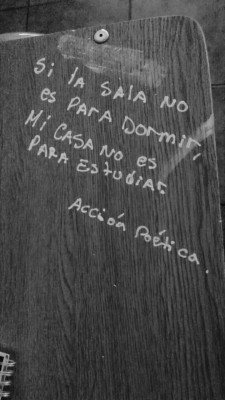 Si la Sala no
es para Dormir,
Mi CASA No es
PARA EStudiar.
Acción Poética.